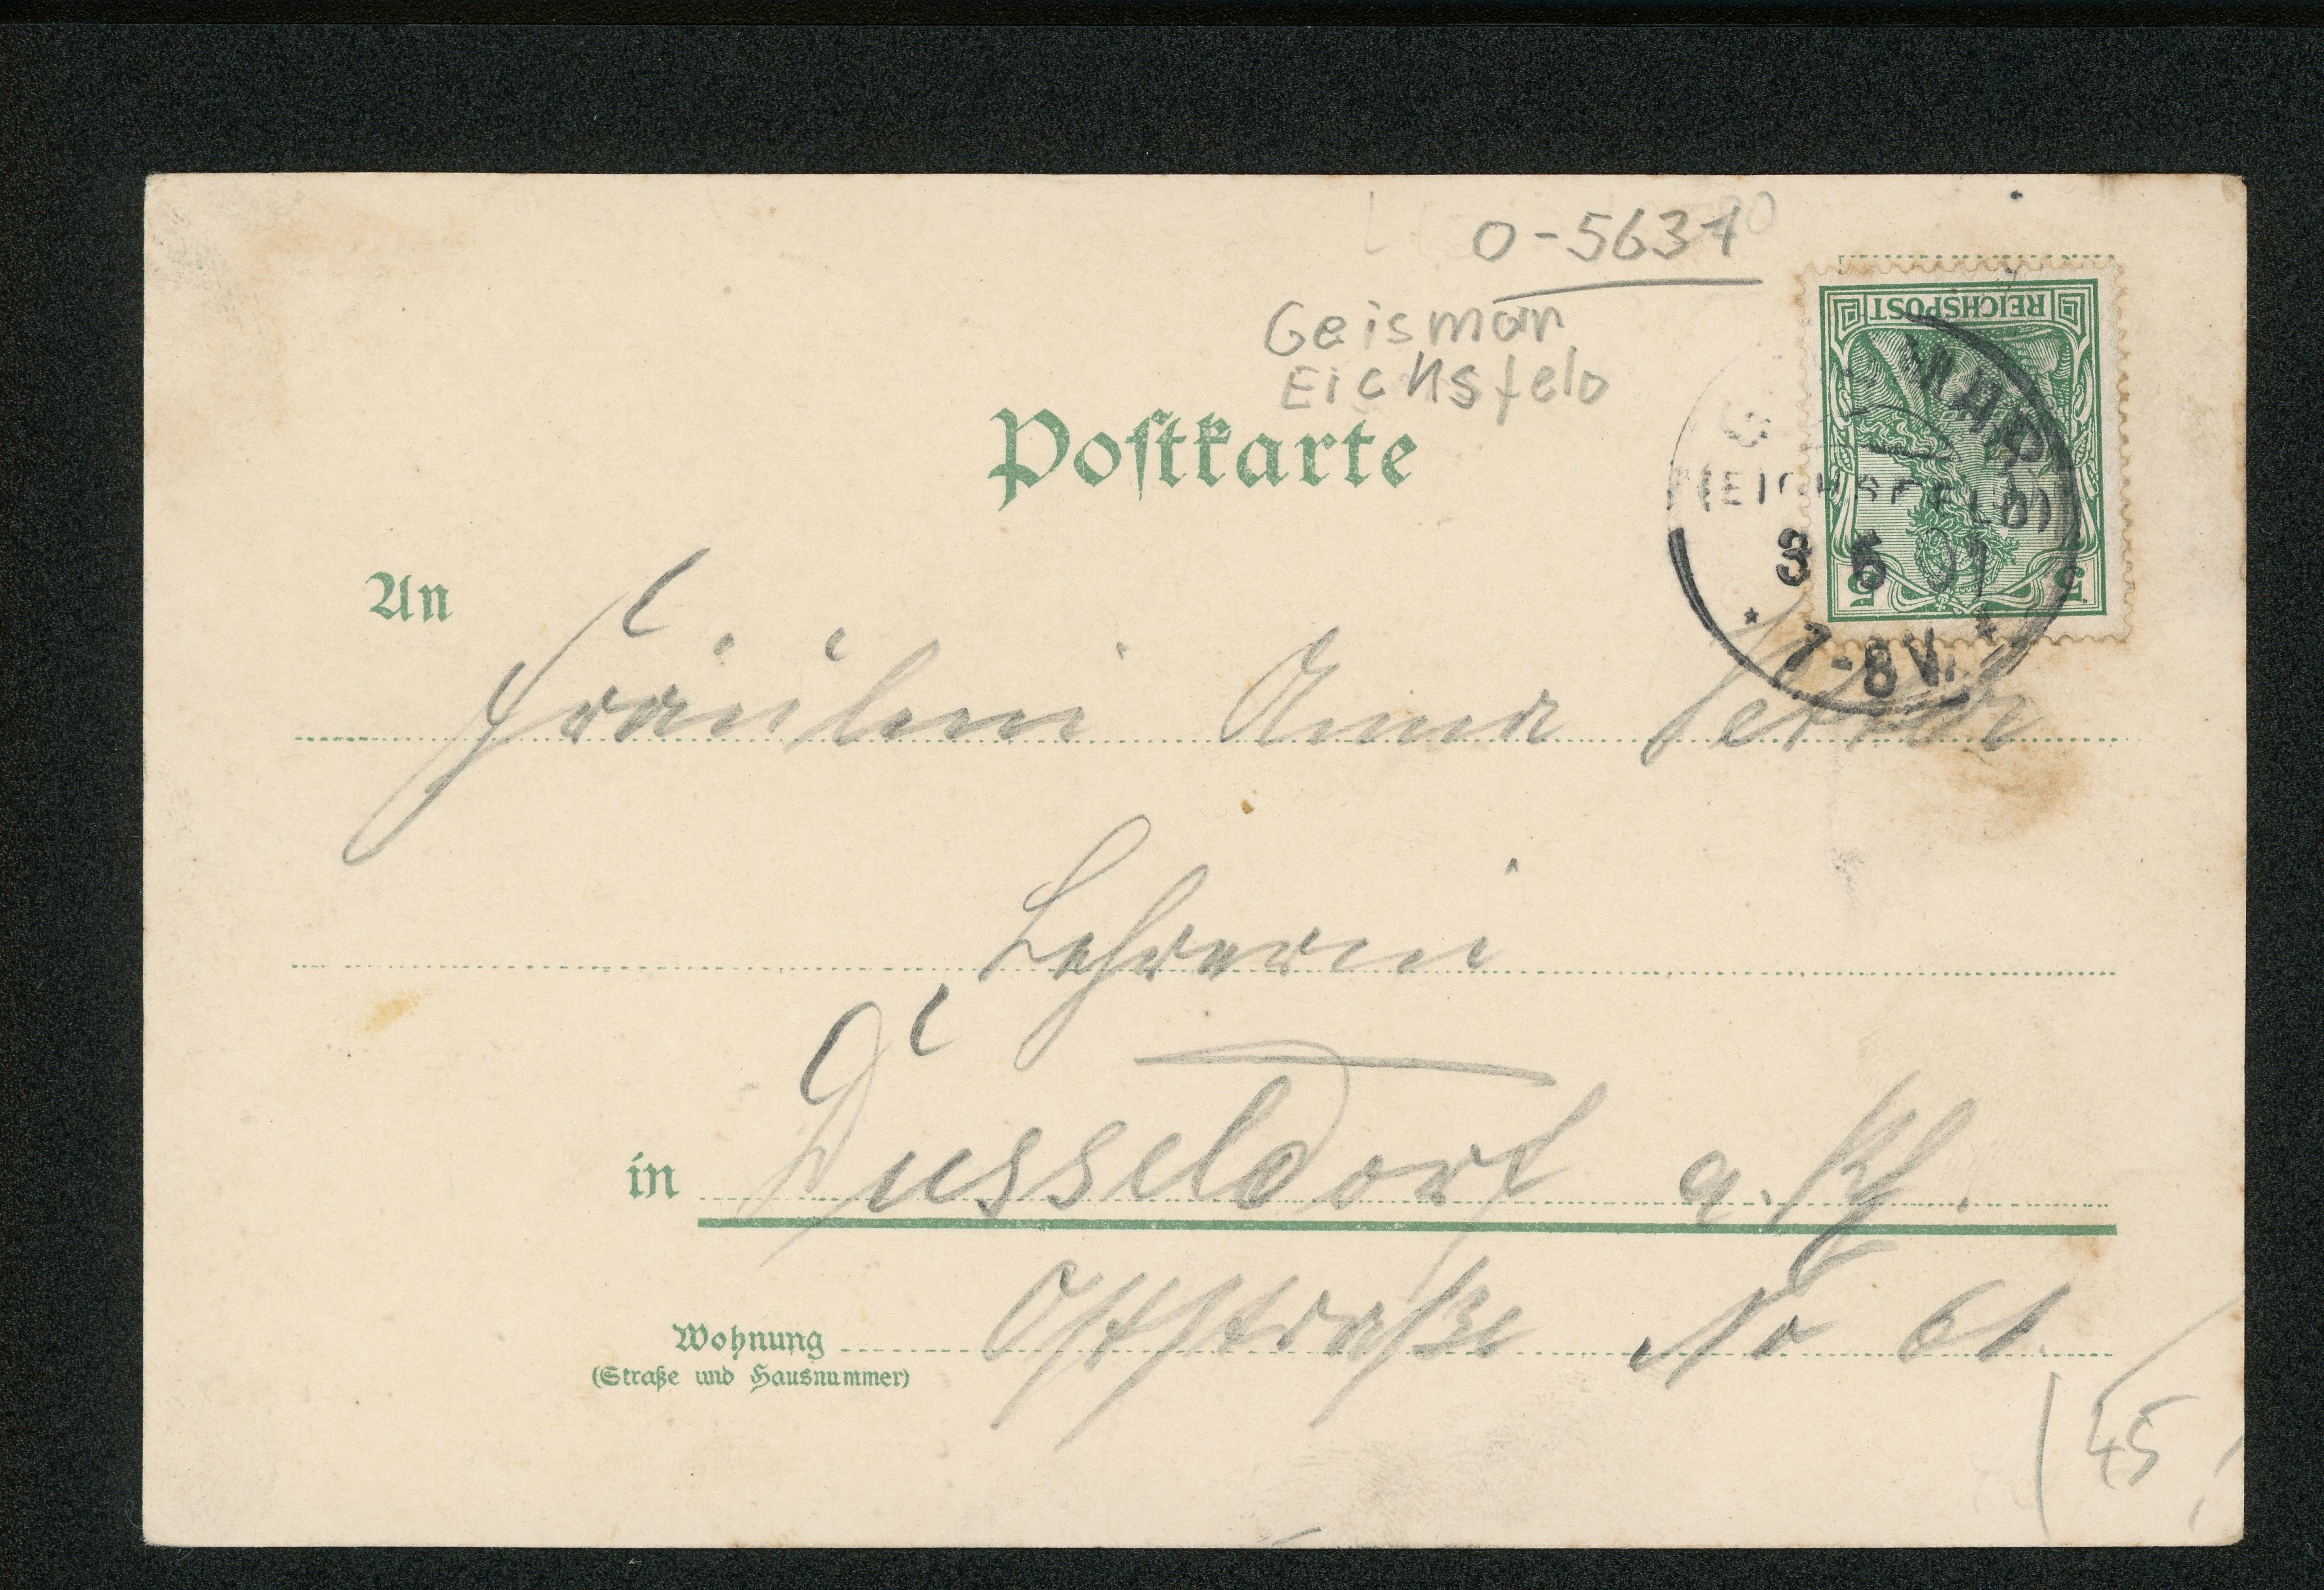 0-5631
Geismar
Eichsfeld
REICHSPOST
5 5
GEISMAR
(EICHSFELD)
3 5 01
* 7-8 V. *
Postkarte
An
Fräulein Anna
Lehrerin
in Düsseldorf a. Rh.
Wohnung Oststraße No 61.
(Straße und Hausnummer)
45